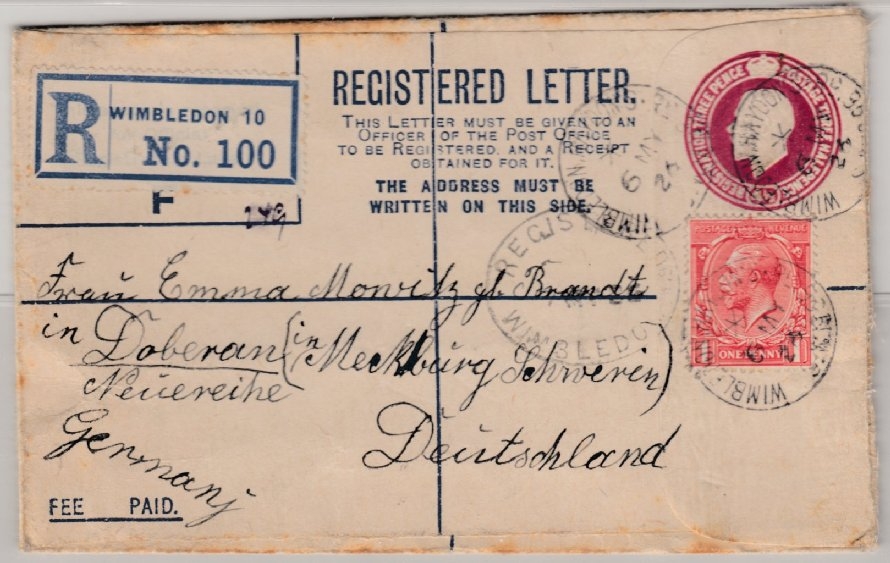 R WIMBLEDON 10
No. 100
F
149
REGISTERED LETTER.
THIS LETTER MUST BE GIVEN TO AN
OFFICER OF THE POST OFFICE
TO BE REGISTERED, AND A RECEIPT
OBTAINED FOR IT.
THE ADDRESS MUST BE
WRITTEN ON THIS SIDE.
THREE PENCE
POSTAGE REVENUE
ONE PENNY
REGIS
WIMBLEDON
WIMBLE
9 MY
Frau Emma Monvitz gb. Brandt
in
Doberan (in Mecklburg Schwerin)
Neuereihe
Germanj
Deutschland
FEE PAID.